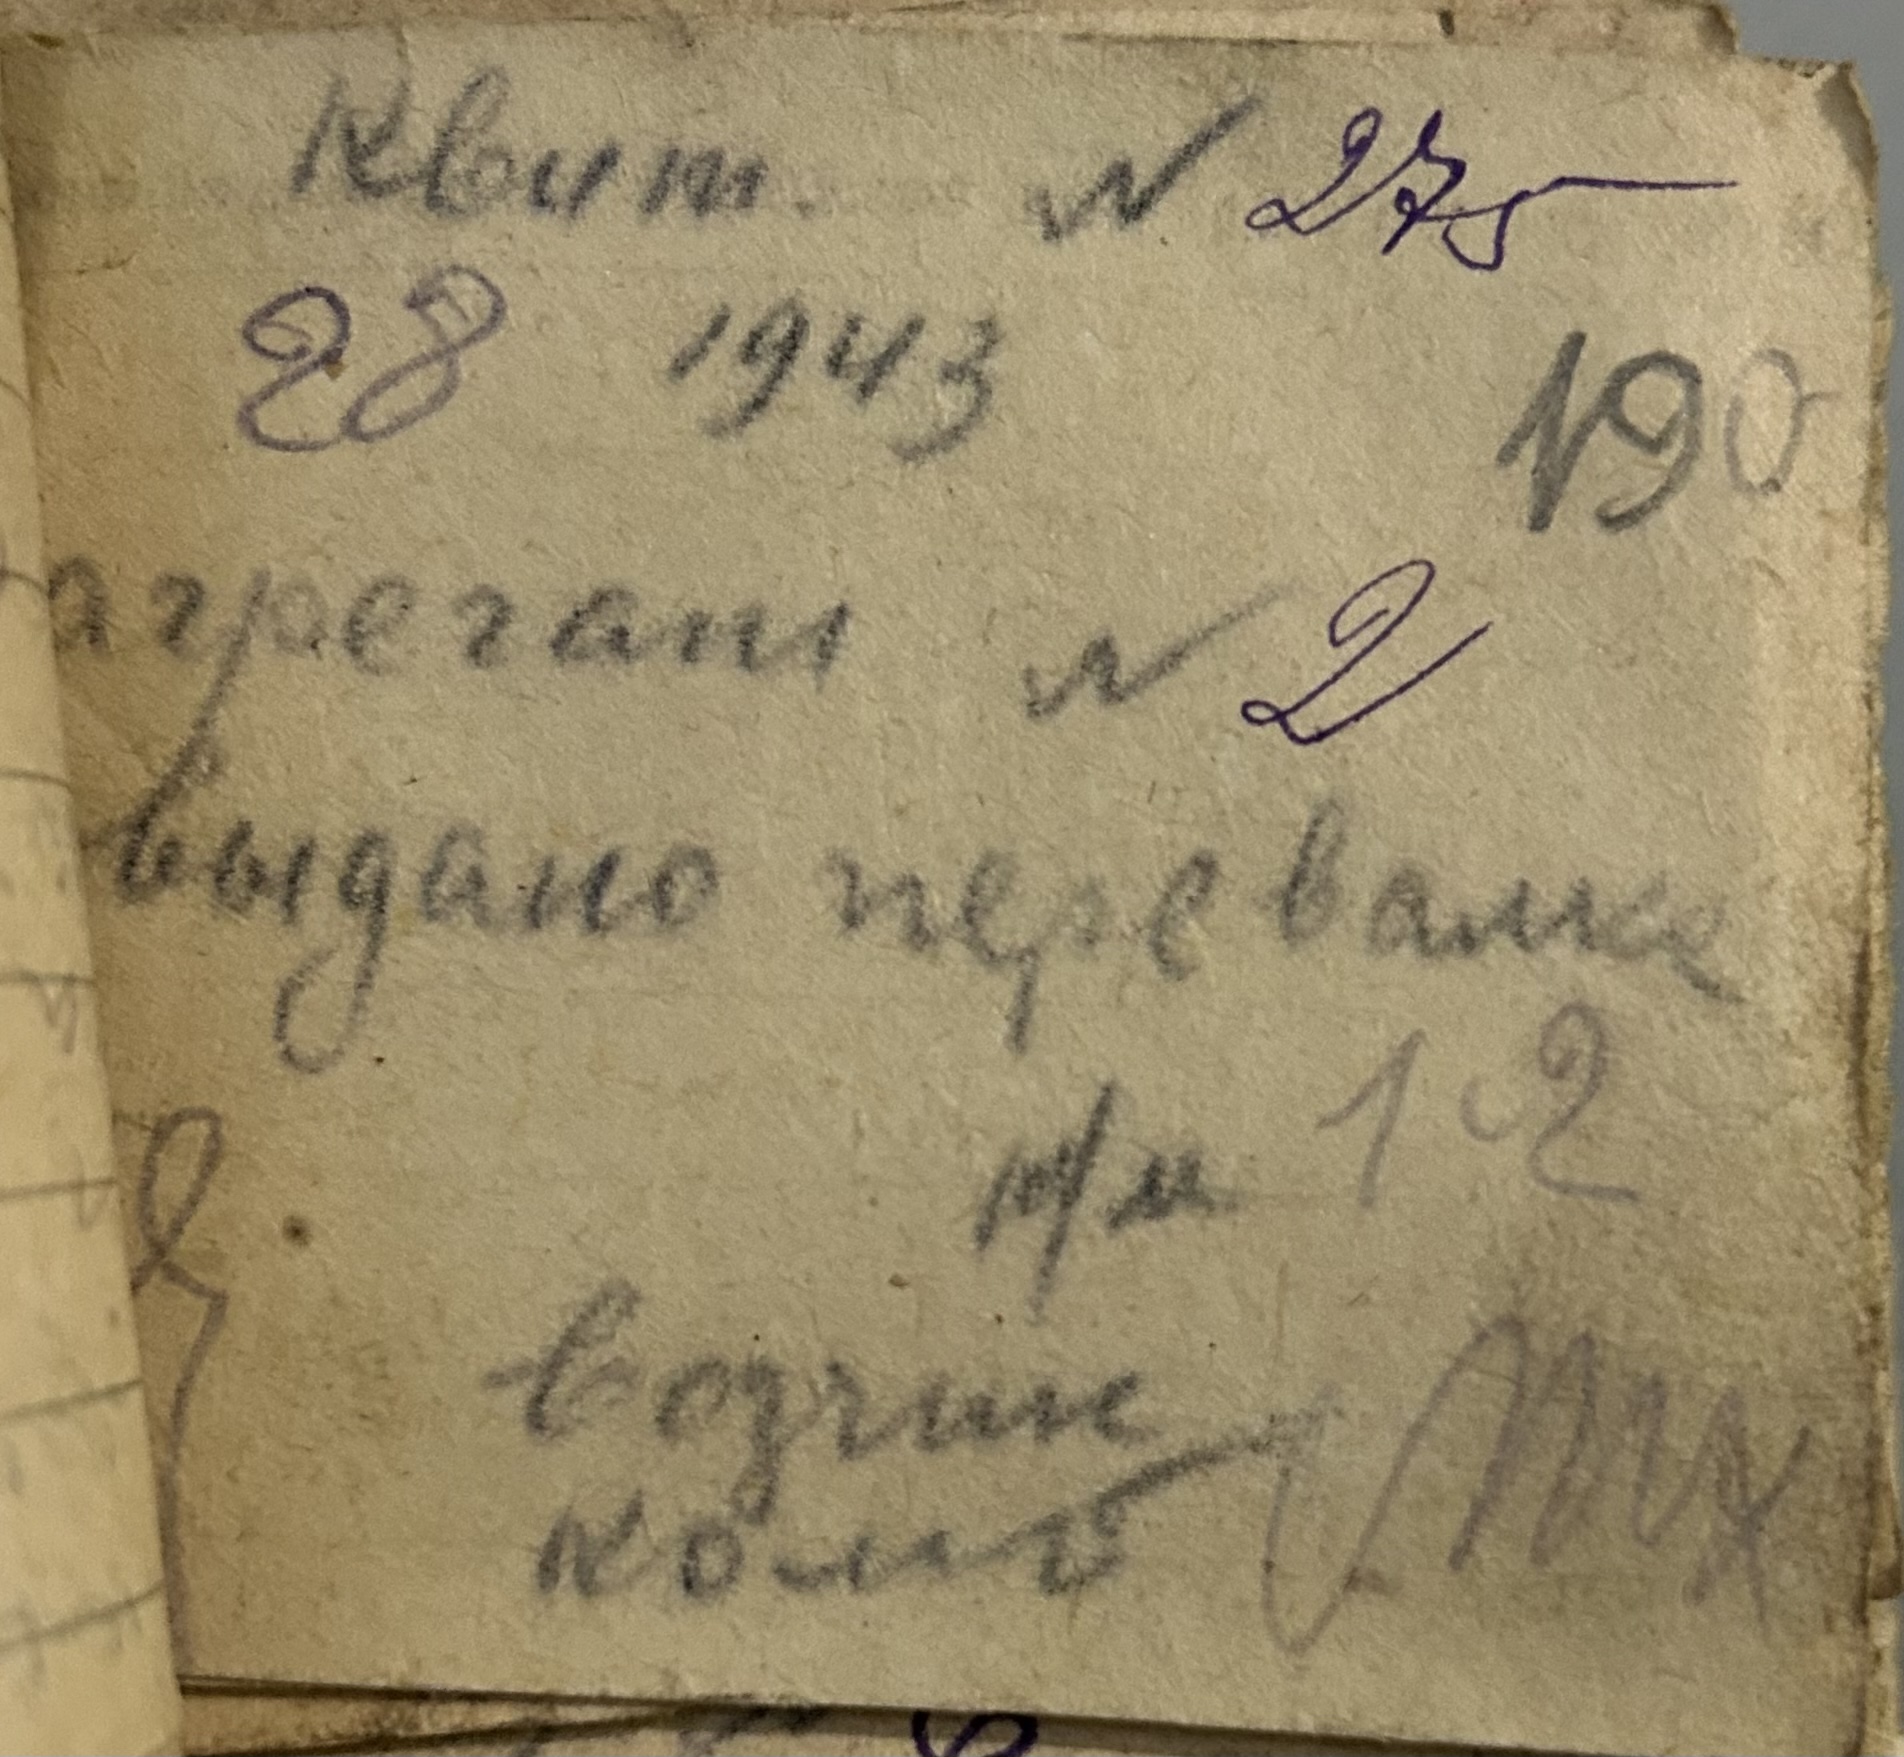 Квит. N 275
28 1943
190
агрегат N 2
выдано перевалке
м/м 12
водчик
комб